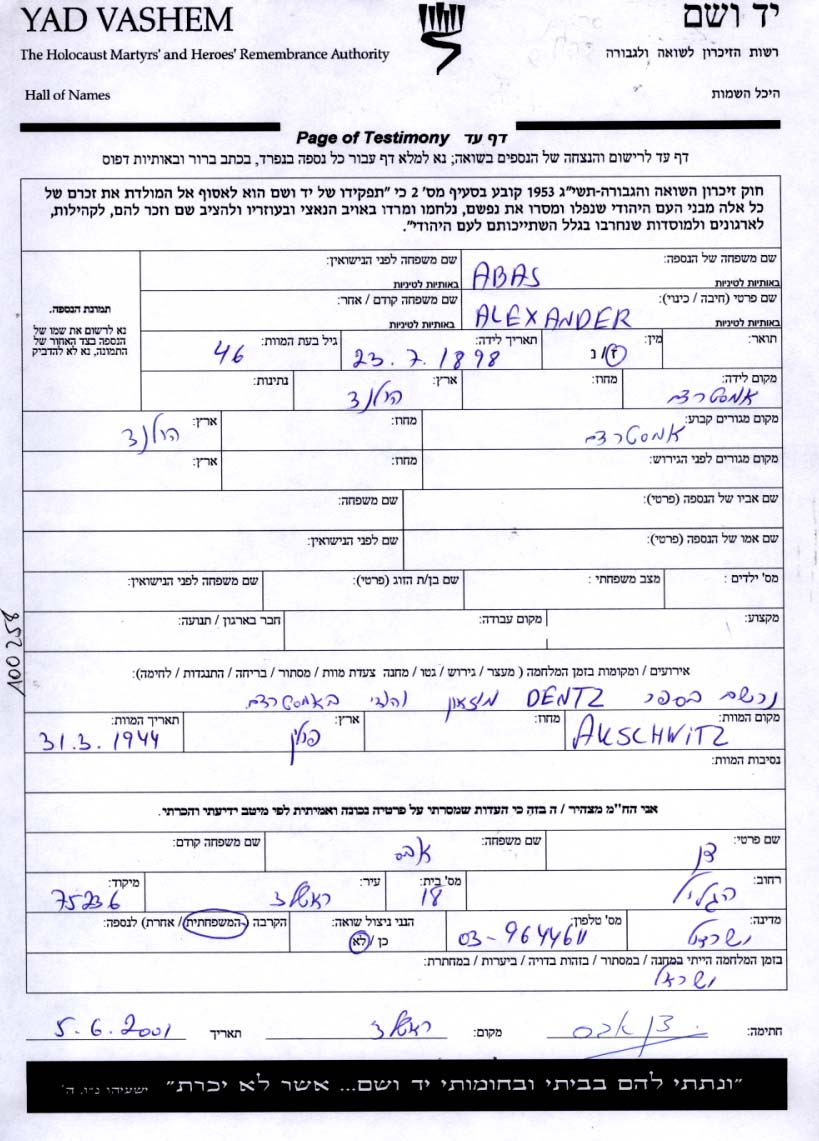 YAD VASHEM
יד ושם
The Holocaust Martyrs' and Heroes' Remembrance Authority
רשות הזיכרון לשואה ולגבורה
Hall of Names
היכל השמות
דף עד Page of Testimony
דף עד לרישום והנצחה של הנספים בשואה; נא למלא דף עבור כל נספה בנפרד, בכתב ברור ובאותיות דפוס
חוק זיכרון השואה והגבורה-תשי"ג 1953 קובע בסעיף מס' 2 כי "תפקידו של יד ושם הוא לאסוף אל המולדת את זכרם של
כל אלה מבני העם היהודי שנפלו ומסרו את נפשם, נלחמו ומרדו באויב הנאצי ובעוזריו ולהציב שם וזכר להם, לקהילות,
לארגונים ולמוסדות שנחרבו בגלל השתייכותם לעם היהודי".
שם משפחה של הנספה: ABAS שם משפחה לפני הנישואין:
באותיות לטיניות באותיות לטיניות
שם פרטי (חיבה / כינוי): ALEXANDER שם משפחה קודם / אחר:
באותיות לטיניות באותיות לטיניות
תמונת הנספה.
נא לרשום את שמו של
הנספה בצד האחור של
התמונה, נא לא להדביק
תואר: מין: ז / נ תאריך לידה: 23.7.1898 גיל בעת המוות: 46
מקום לידה: אמסטרדם מחוז: ארץ: הולנד נתינות:
מקום מגורים קבוע: אמסטרדם מחוז: ארץ: הולנד
מקום מגורים לפני הגירוש: מחוז: ארץ:
שם אביו של הנספה (פרטי): שם משפחה:
שם אמו של הנספה (פרטי): שם לפני הנישואין:
מס' ילדים : מצב משפחתי : שם בן/ת הזוג (פרטי): שם משפחה לפני הנישואין:
מקצוע: מקום עבודה: חבר בארגון / תנועה:
100258
אירועים / ומקומות בזמן המלחמה ( מעצר / גירוש / גטו / מחנה צעדת מוות / מסתור / בריחה / התנגדות / לחימה):
נרשם בספר DENTZ מוזאון יהודי באמסטרדם
מקום המוות: AKSCHWITZ מחוז: ארץ: פולין תאריך המוות: 31.3.1944
נסיבות המוות:
אני הח"מ מצהיר / ה בזה כי העדות שמסרתי על פרטיה נכונה ואמיתית לפי מיטב ידיעתי והכרתי.
שם פרטי: דן שם משפחה: אבס שם משפחה קודם:
רחוב: הגליל מס' בית: 18 עיר: ראשל"צ מיקוד: 75236
מדינה: ישראל מס' טלפון: 03-9644611 הנני ניצול שואה: כן / לא הקרבה (המשפחתית / אחרת) לנספה:
בזמן המלחמה הייתי במחנה / במסתור / בזהות בדויה / ביערות / במחתרת:
ישראל
חתימה: דן אבס מקום: ראשל"צ תאריך 5.6.2001
"ונתתי להם בביתי ובחומותי יד ושם... אשר לא יכרת" ישעיהו נ"ו, ה'